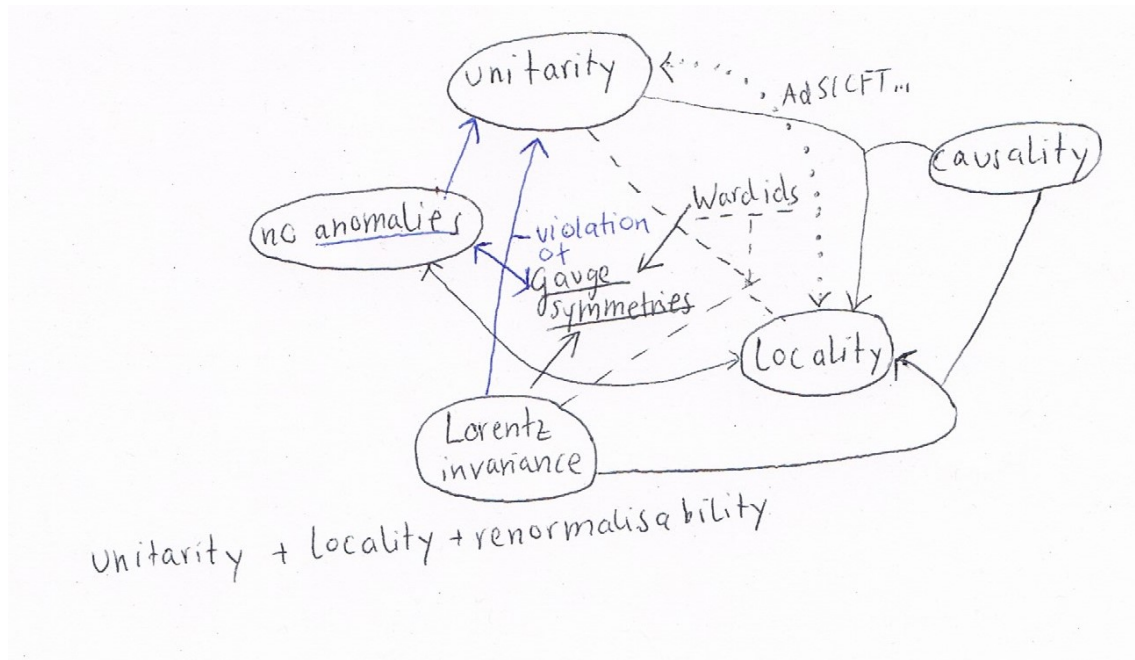 unitarity
AdS/CFT...
causality
Ward ids
no anomalies
violation
of
gauge
symmetries
locality
Lorentz
invariance
unitarity + locality + renormalisability